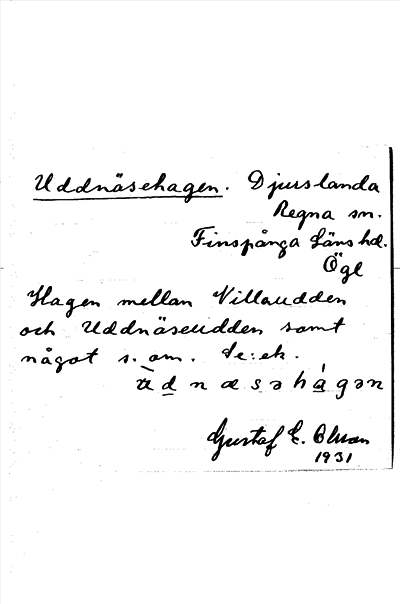 Uddnäsehagen. Djurslanda
Regna sn.
Finspånga läns hd.
Ögl
Hagen mellan Villaudden
och Uddnäseudden samt
något s. om. Se: ek.
ùd̲næs̲əhágən
Gustaf E. Olsson
1931